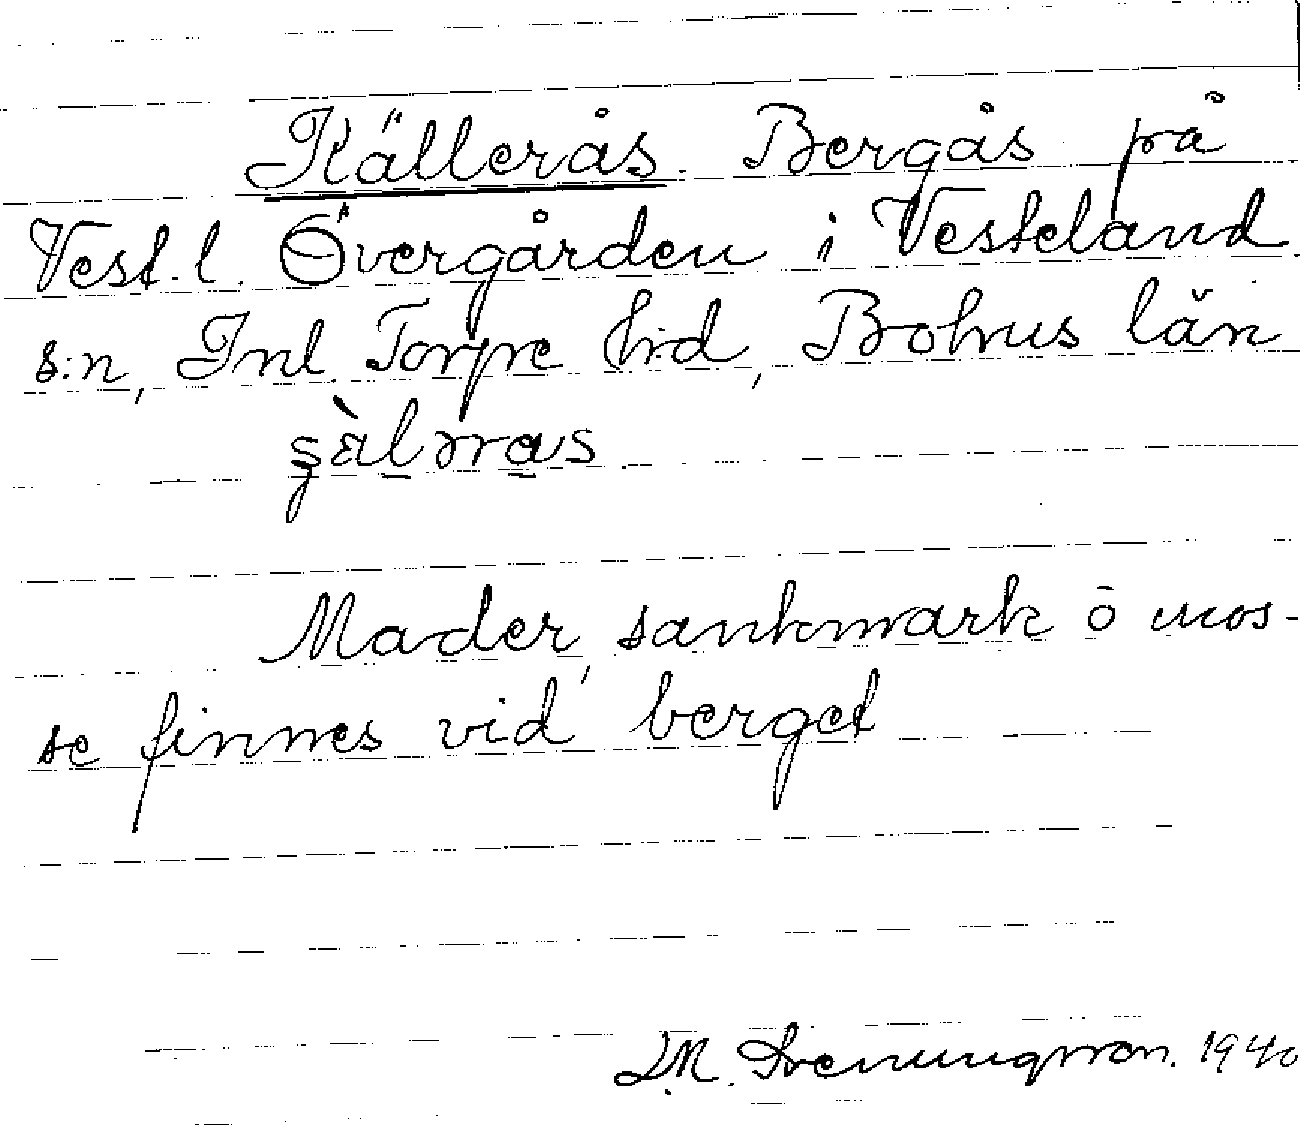 Källerås. Bergås på
Vest. l. Övergården i Vesteland
s:n, Inl. Torpe hrd, Bohus län
s̨ɛ̀lərras
Mader, sankmark ō mos-
se finnes vid berget
J.M. Svenungsson. 1940